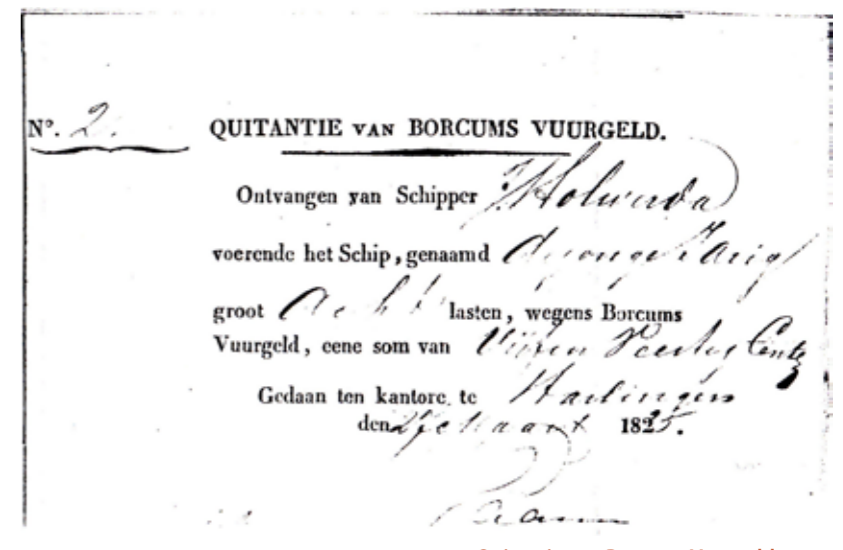 N°. 2. QUITANTIE VAN BORCUMS VUURGELD.
Ontvangen van Schipper Holwerda
voerende het Schip, genaamd
groot Acht lasten, wegens Borcums
Vuurgeld, eene som van Centz
Gedaan ten kantore te Harlingen
den Maart 1825.